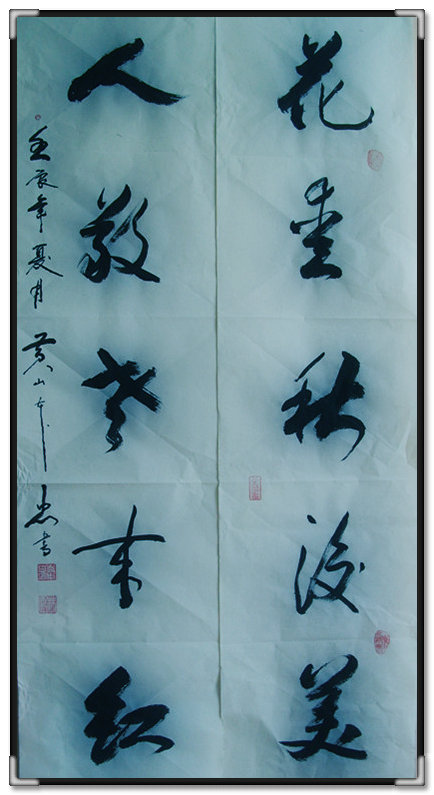 花重秋後美
人敬老来红
壬辰年夏月 黄山 忠書